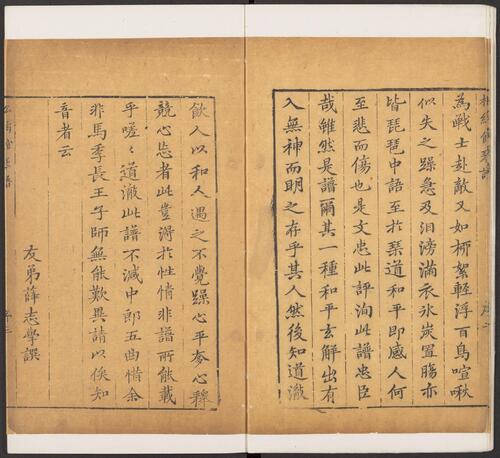 為戰士赴敵又如柳絮輕浮百鳥喧啾
似失之躁急及泪滂滿衣氷炭置腸亦
皆琵琶中語至於琴道和平即感人何
至悲而傷也是文忠此評洵此譜忠臣
哉雖然是譜爾其一種和平玄解出有
入無神而明之存乎其人然後知道澂
飲人以和人遇之不覺躁心平矜心釋
競心忘者此豈淂於性情非譜所能載
乎嗟〻道澂此譜不減中郎五曲惜余
非馬季長王子師無能歎異請以俟知
音者云
友弟薛志學譔